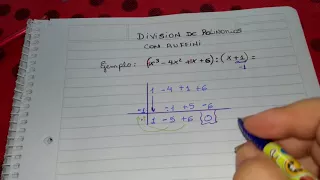 DIVISION DE POLINOMIOS
CON RUFFINI
Ejemplo: (x³ - 4x² + x + 6) : (x + 1) =
-1
1 -4 +1 +6
-1 -1 +5 -6
1 -5 +6 0